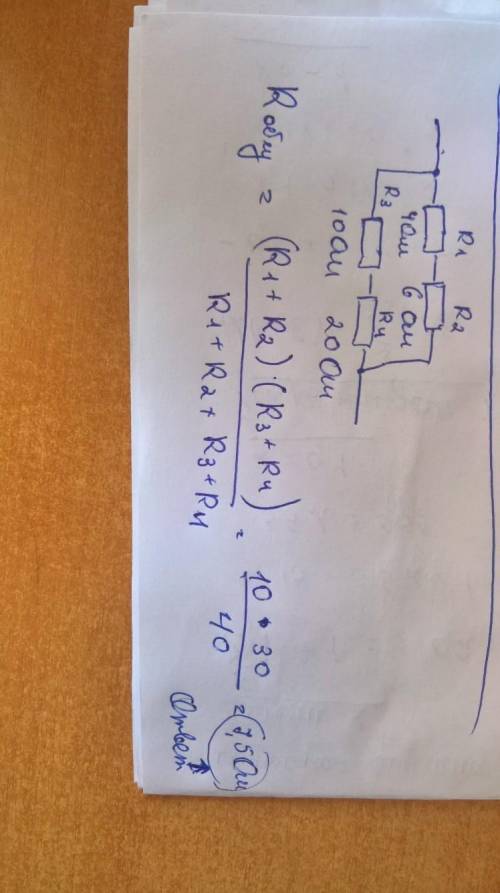 R1 R2
4 Ом 6 Ом
R3 R4
10 Ом 20 Ом
Rобщ = (R1 + R2) · (R3 + R4) / R1 + R2 + R3 + R4 = 10 · 30 / 40 = 7,5 Ом
Ответ